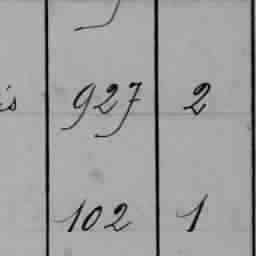 is 927 2
102 1